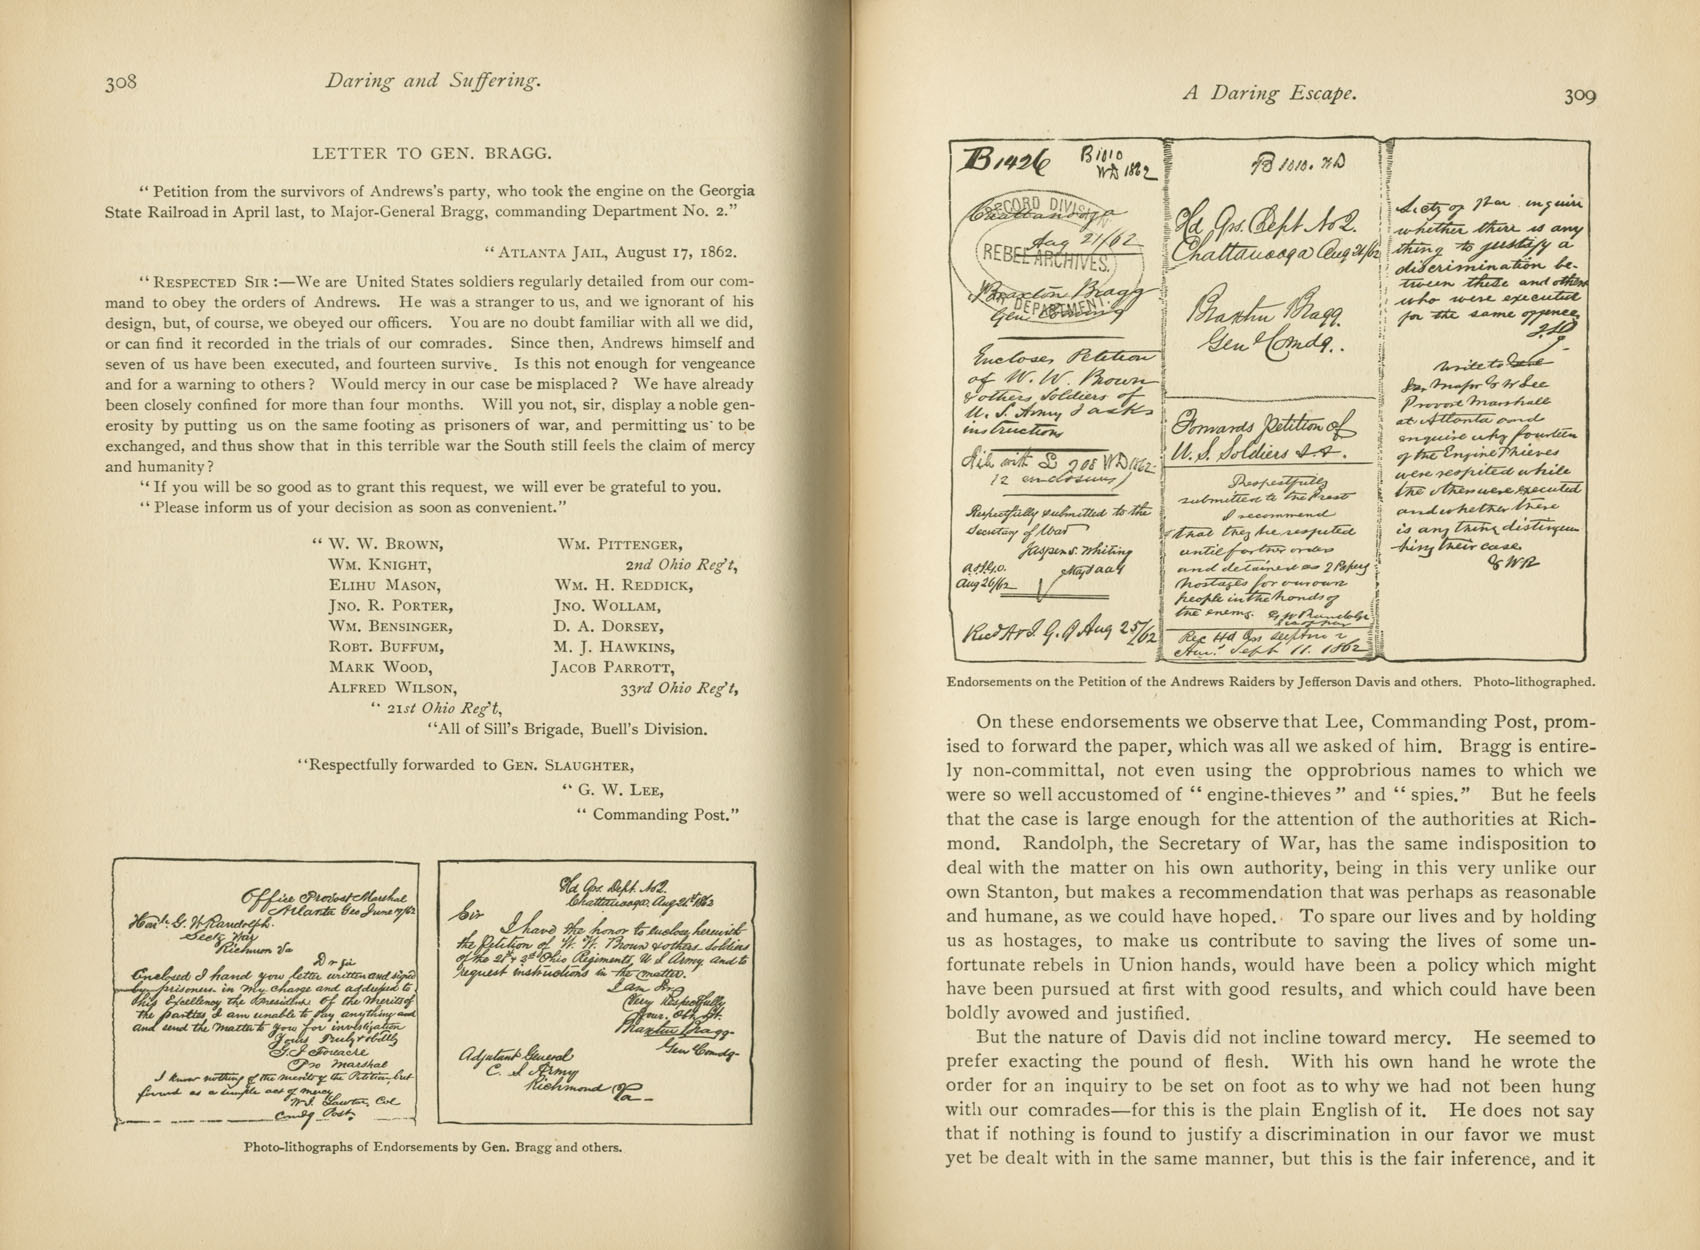 308
Daring and Suffering.
LETTER TO GEN. BRAGG.
“ Petition from the survivors of Andrews’s party, who took the engine on the Georgia
State Railroad in April last, to Major-General Bragg, commanding Department No. 2.”
“ ATLANTA JAIL, August 17, 1862.
“ RESPECTED SIR :—We are United States soldiers regularly detailed from our com-
mand to obey the orders of Andrews. He was a stranger to us, and we ignorant of his
design, but, of course, we obeyed our officers. You are no doubt familiar with all we did,
or can find it recorded in the trials of our comrades. Since then, Andrews himself and
seven of us have been executed, and fourteen survive. Is this not enough for vengeance
and for a warning to others ? Would mercy in our case be misplaced ? We have already
been closely confined for more than four months. Will you not, sir, display a noble gen-
erosity by putting us on the same footing as prisoners of war, and permitting us to be
exchanged, and thus show that in this terrible war the South still feels the claim of mercy
and humanity ?
“ If you will be so good as to grant this request, we will ever be grateful to you.
“ Please inform us of your decision as soon as convenient.”
“ W. W. BROWN,
WM. KNIGHT,
ELIHU MASON,
JNO. R. PORTER,
WM. BENSINGER,
ROBT. BUFFUM,
MARK WOOD,
ALFRED WILSON,
“ 21st Ohio Reg’t,
WM. PITTENGER,
2nd Ohio Reg’t,
WM. H. REDDICK,
JNO. WOLLAM,
D. A. DORSEY,
M. J. HAWKINS,
JACOB PARROTT,
33rd Ohio Reg’t,
“All of Sill’s Brigade, Buell’s Division.
“Respectfully forwarded to GEN. SLAUGHTER,
“ G. W. LEE,
“ Commanding Post.”
Office Provost Marshal
Atlanta Geo June 17/62
Honl. G. W Randolph
Secty War
Richmon Va
Dr sir
Enclosed I hand you letter written and signed
by prisoners in my charge and addressed to
his Excellency the President Of the merits of
the parties I am unable to say anything and
and send the matter to you for investigation
Yours Truly &
G. J Foreacre
Pro Marshal
I know nothing of the merits of the Petition, but
forward as a simple act of mercy
Col
Comdg Post
Hd Qrs. Dept. No 2.
Chattanooga, Aug 21st 1862
Sir
I have the honor to enclose herewith
the Petition of W. W. Brown & others soldiers
of the 21st & 33d Ohio Regiments, U S Army and to
request instructions in the matter.
I am Sir
Very Respectfully
Your. Obt St.
Braxton Bragg
Gen Comdg
Adjutant General
C. S Army
Richmond Va
Photo-lithographs of Endorsements by Gen. Bragg and others.
A Daring Escape.
309
B1426
B1010
WD 1862
RECORD DIVISION
Chattanooga
Aug 21/62
REBEL ARCHIVES.
Braxton Bragg
DEPARTMENT.
Encloses Petition
of W. W. Brown
& others Soldiers of
U. S. Army & asks
instructions
File with 208 WD 1862
12 enclosures
Respectfully submitted to the
Secretary of War
Jasper S. Whiting
Maj & AAG
A.&I.G.O.
Aug 26/62
Recd A & I. G. O Aug 25/62
B 1010. WD
Hd Qrs. Dept No 2.
Chattanooga Aug 21/62
Braxton Bragg.
Genl Comdg.
Forwards Petition of
U. S. Soldiers
Respectfully
submitted to the Prest
I recommend
that they be respited
until further orders
and detained as
hostages for our own
people in the hands of
the enemy.
Sept 11. 1862
Secty of War inquire
whether there is any
thing to justify a
discrimination be-
tween these and others
who were executed
for the same offence.
J.D.
Write to
Provost Marshall
at Atlanta and
enquire why fourteen
of the Engine Thieves
were respited while
the others were executed
and whether there
is any thing distinguis
hing their case.
G W R
Endorsements on the Petition of the Andrews Raiders by Jefferson Davis and others. Photo-lithographed.
On these endorsements we observe that Lee, Commanding Post, prom-
ised to forward the paper, which was all we asked of him. Bragg is entire-
ly non-committal, not even using the opprobrious names to which we
were so well accustomed of “ engine-thieves ” and “ spies.” But he feels
that the case is large enough for the attention of the authorities at Rich-
mond. Randolph, the Secretary of War, has the same indisposition to
deal with the matter on his own authority, being in this very unlike our
own Stanton, but makes a recommendation that was perhaps as reasonable
and humane, as we could have hoped. To spare our lives and by holding
us as hostages, to make us contribute to saving the lives of some un-
fortunate rebels in Union hands, would have been a policy which might
have been pursued at first with good results, and which could have been
boldly avowed and justified.
But the nature of Davis did not incline toward mercy. He seemed to
prefer exacting the pound of flesh. With his own hand he wrote the
order for an inquiry to be set on foot as to why we had not been hung
with our comrades—for this is the plain English of it. He does not say
that if nothing is found to justify a discrimination in our favor we must
yet be dealt with in the same manner, but this is the fair inference, and it